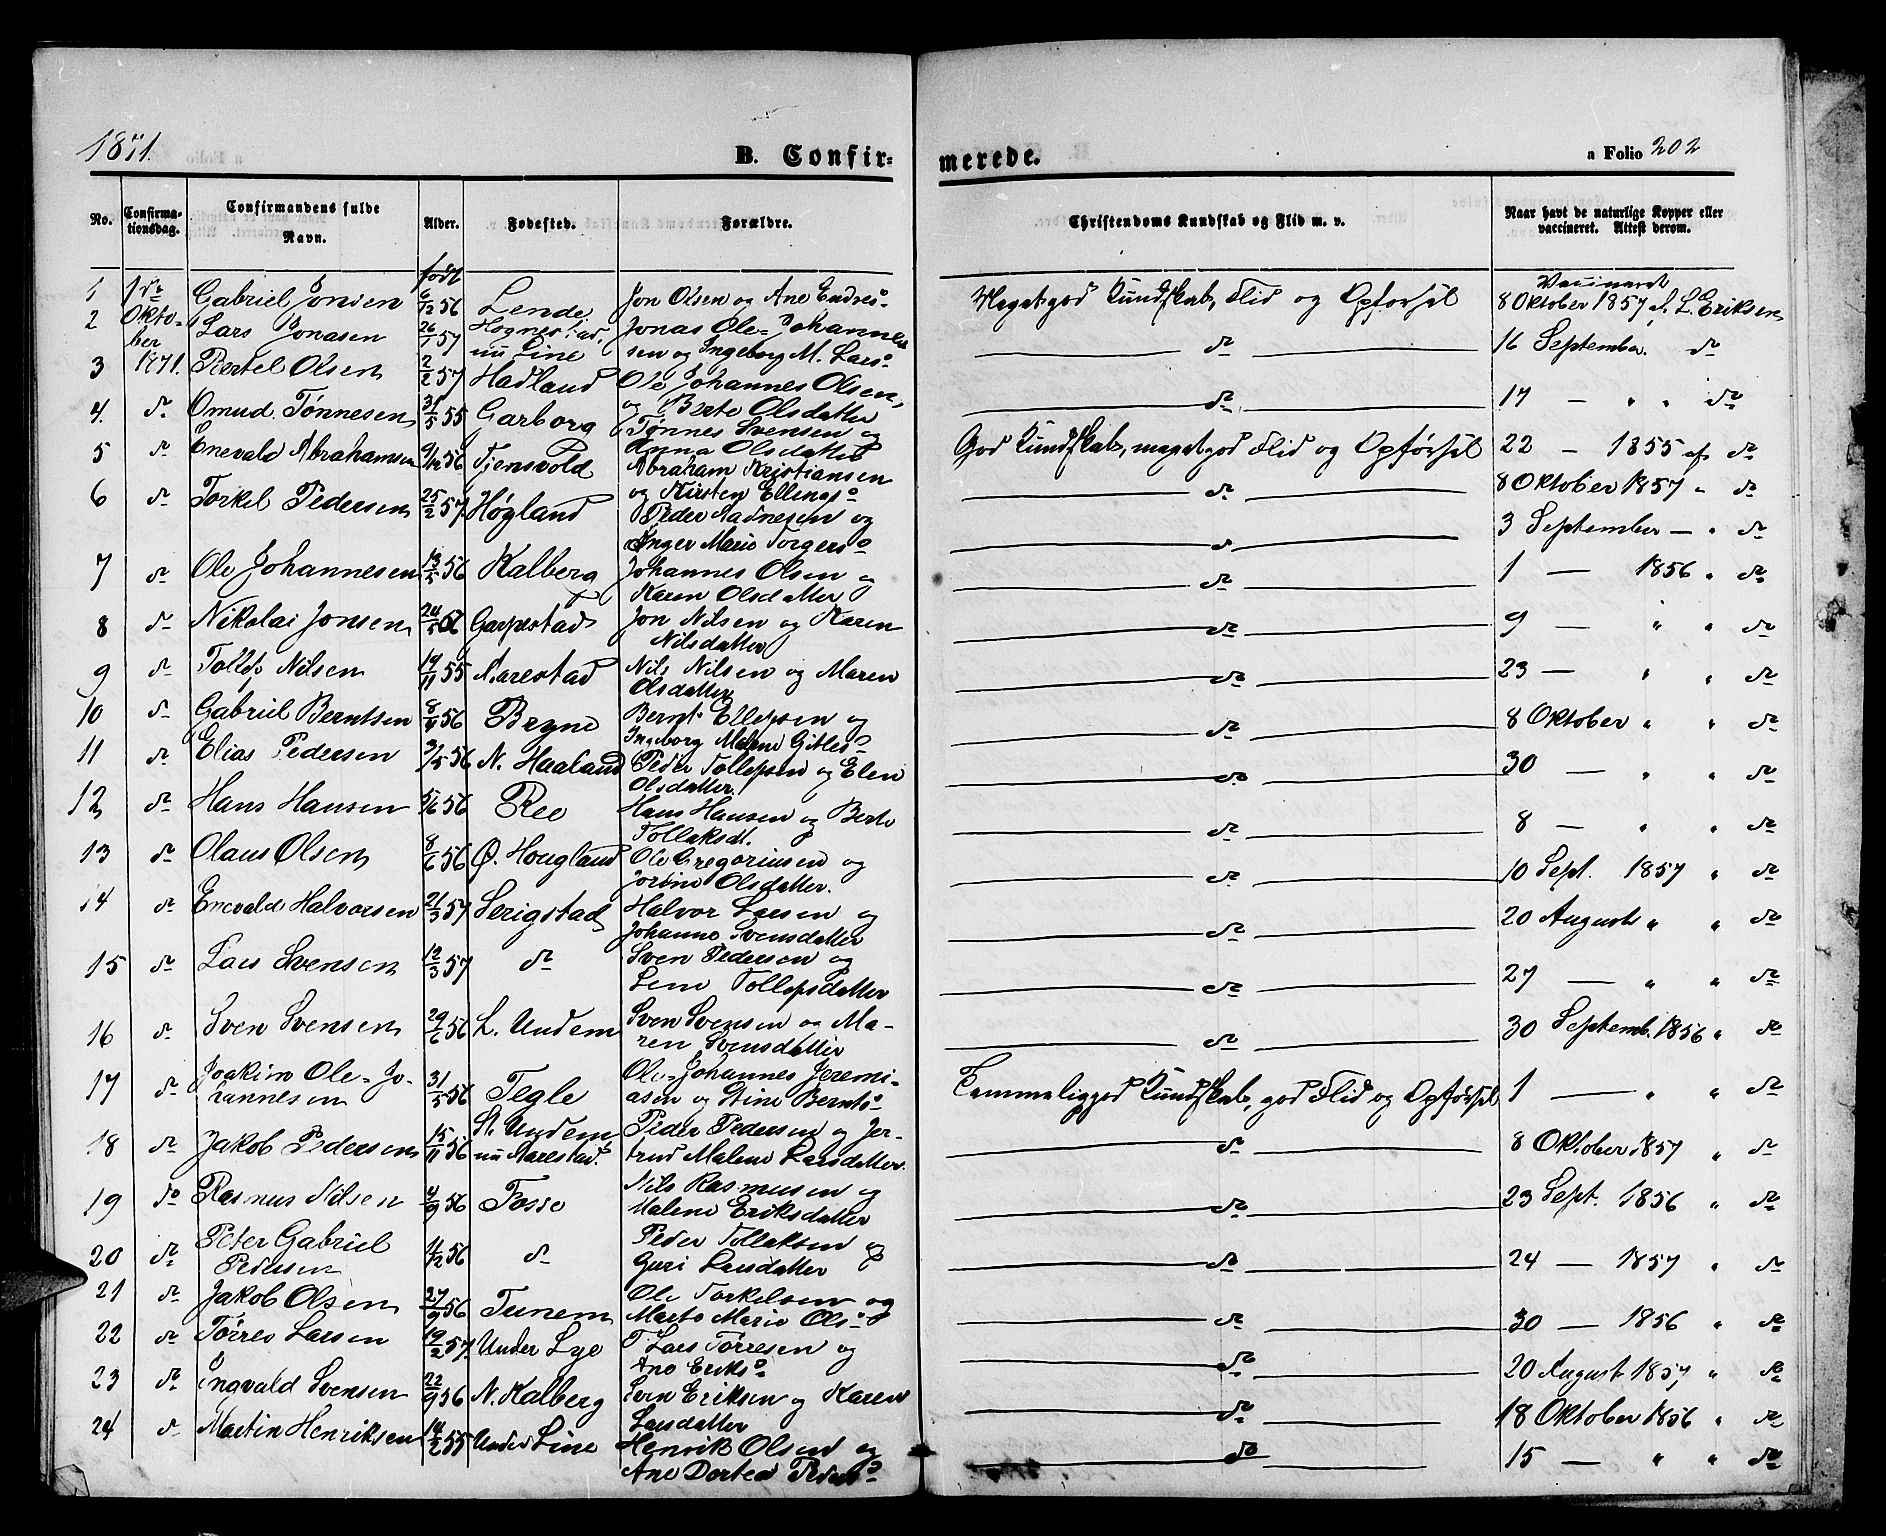 1871.
B. Confirmerede.
a Folio 202
No. Confirmationsdag. Confirmandens fulde Navn. Alder. Fødested. Forældre. Christendoms Kundskab og Flid m. v. Naar havt de naturlige Kopper eller vaccineret. Attest derom.
født Vaccineret
1 1ste Gabriel Jonsen 6/12 56 Lende Jon Olsen og Ane Endresd Meget god Kundskab, Flid og Opførsel 8 Oktober 1857 af L. Eriksen
2 Oktober Lars Jonasen 26/1 57 Hognestad, nu Line Jonas Ole-Johannessen og Ingeborg M. Larsd do 16 September do
3 1871. Bertel Olsen 2/2 57 Hadland Ole Johannes Olsen, og Berte Olsdatter do 17 — " " do
4. do Omund Tønnesen 31/5 55 Garborg Tønnes Svensen og Anna Olsdatter God Kundskab, meget god Flid og Opførsel 22 — 1855 af do
5 do Enevald Abrahamsen 9/12 56 Tjensvold Abraham Kristiansen og Kirsten Ellingsd do 8 Oktober 1857 " do
6 do Torkel Pedersen 25/2 57. Høyland Peder Aadnesen og Inger Marie Torgersd do 3 September — " do
7 do Ole Johannesen 13/5 56 Kalberg Johannes Olsen og Karen Olsdatter do 1 — 1856 " do
8 do Nikolai Jonsen 24/5 56 Gaupestad Jon Nilsen og Karen Nilsdatter do 9 — " " do
9 do Tollef Nilsen 19/11 55 Aarestad Nils Nilsen og Maren Olsdatter do 23 — " " do
10 do Gabriel Berntsen 56 Bryne Bernt Ellefsen og Ingeborg Malene Gitlesd do 8 Oktober " " do
11 do Elias Pedersen 3/5 56 N. Haaland Peder Tollefsen og Elen Olsdatter do 30 — " " do
12 do Hans Hansen 5/6 56 Ree Hans Hansen og Berte Tollaksdt. do 8 — " " do
13 do Olaus Olsen 8/6 56 Ø. Hougland Ole Gregoriusen og Jorine Olsdatter. do 10 Sept. 1857 " do
14 do Enevald Halvorsen 21/3 57 Serigstad Halvor Larsen og Johanne Svensdatter do 20 August " " do
15 do Lars Svensen 12/3 57 do Sven Pedersen og Lene Tollefsdatter do 27 — " " do
16 do Sven Svensen 29/6 56 L. Undem Sven Svensen og Maren Svensdatter do 30 Septemb. 1856 " do
17 do Joakim Ole-Johannesen 31/5 56 Tegle Ole-Johannes Jeremiasen og Stine Berntsd Temmelig god Kundskab, god Flid og Opførsel 1 — " " do
18 do Jakob Pedersen 15/11 56 St. Undem nu Aarestad. Peder Pedersen og Jertrud Malene Larsdatter. do 8 Oktober 1857 " do
19 do Rasmus Nilsen 4/9 56 Fosse Nils Rasmusen og Malene Eriksdatter do 23 Sept. 1856 " do
20 do Peter Gabriel Pedersen 56 do Peder Tollaksen og Guri Larsdatter do 24 — 1857 " do
21 do Jakob Olsen 27/9 56 Tunem Ole Torkelsen og Marte Marie Olsd do 30 — 1856 " do
22 do Tørres Larsen 19/2 57. Under Lye Lars Tørresen og Ane Eriksd do 20 August 1857 " do
23 do Ingvald Svensen 22/9 56 N. Kalberg Sven Eriksen og Karen Larsdatter do 18 Oktober 1856 " do
24 do Martin Henriksen 14/2 55 Under Line Henrik Olsen og Ane Dortea Pedersd do 15 — " " do